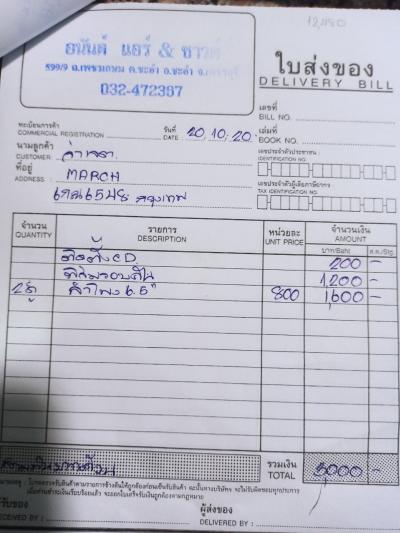 12,480
อนันต์ แอร์ & ซาวด์
599/9 ถ.เพชรเกษม ต.ชะอำ อ.ชะอำ จ.เพชรบุรี
032-472387
ใบส่งของ
DELIVERY BILL
เลขที่
BILL NO.
ทะเบียนการค้า วันที่ 20.10.20. เล่มที่
COMMERCIAL REGISTRATION DATE BOOK NO.
นามลูกค้า
CUSTOMER
เลขประจำตัวประชาชน
IDENTIFICATION NO.
ที่อยู่ MARCH
ADDRESS กรุงเทพ
เลขประจำตัวผู้เสียภาษีอากร
IDENTIFICATION NO.
จำนวน รายการ หน่วยละ จำนวนเงิน
QUANTITY DESCRIPTION UNIT PRICE AMOUNT
บาท/Baht ส.ต./Stg.
ติดตั้ง CD 200 -
ติดฟิล์มรอบคัน 1,200 -
2 คู่ ลำโพง 6.5" 800 1,600 -
สามพันบาทถ้วน รวมเงิน 3,000 -
TOTAL
ผู้รับของ ผู้ส่งของ
RECEIVED BY : DELIVERED BY :